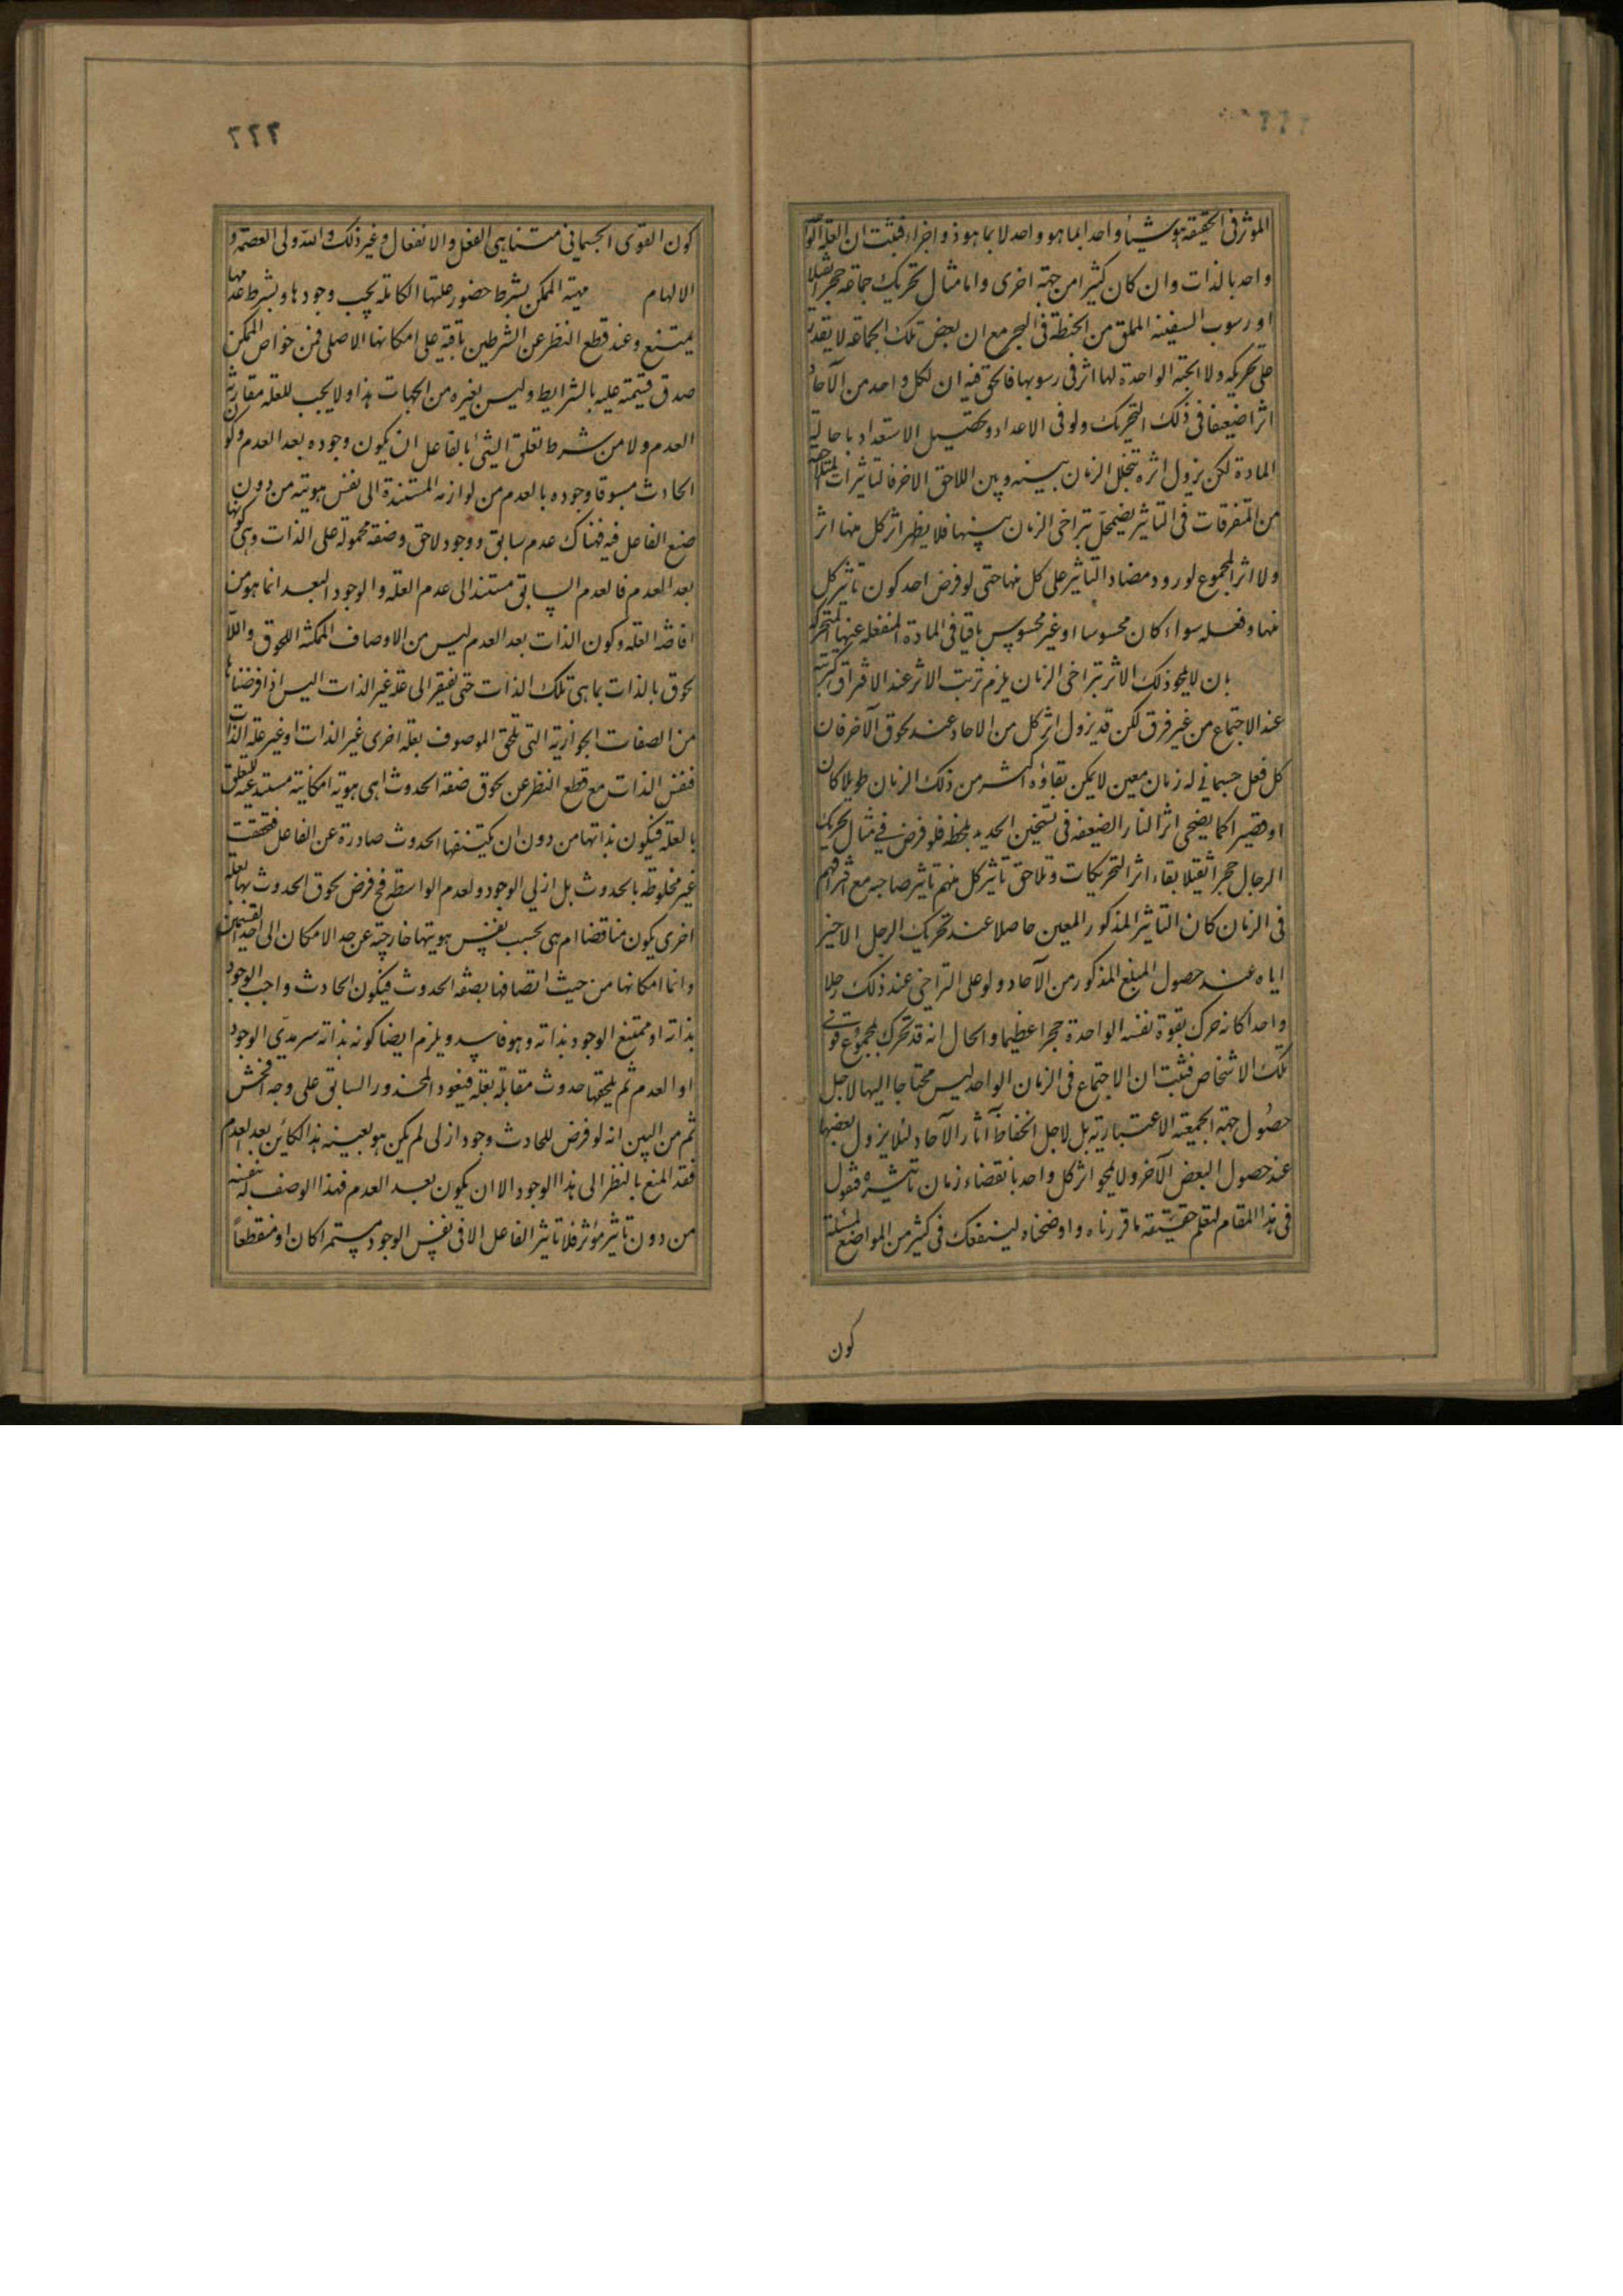 ٢٢٢
المؤثر فى الحقيقة هو شيئا واحدا بما هو واحد لا بما هو ذو اجزاء فثبت ان العلة
واحد بالذات وان كان كثيرا من جهة اخرى واما مثال تحريك جماعة حجرا ثقيلا
او رسوب السفينة المملق من الحنطة فى البحر مع ان بعض تلك الجماعة لا يقدر
على تحريكه ولا الحبة الواحدة لها اثر فى رسوبها فالحق فيه ان لكل واحد من الآحاد
اثرا ضعيفا فى ذلك التحريك ولو فى الاعداد وتحصيل الاستعداد باحالة
المادة لكن يزول اثره بتخلل الزمان بينه وبين اللاحق الاخر فالتاثيرات المتلاحقة
من المتفرقات فى التاثير يضمحل بتراخى الزمان بينها فلا يظهر اثر كل منها اثر
ولا اثر المجموع لورود مضاد التاثير على كل منها حتى لو فرض احد كون تاثير كل
منها وفعله سواء كان محسوسا او غير محسوس باقيا فى المادة المنفعلة عنها المتحركة
بان لا يمحو ذلك الاثر بتراخى الزمان يلزم ترتب الاثر عند الافتراق كترتبه
عند الاجتماع من غير فرق لكن قد يزول اثر كل من الاحاد عند لحوق الآخر فان
كل فعل جسمانى له زمان معين لا يمكن بقاؤه اكثر من ذلك الزمان طويلا كان
او قصيرا كما يضحى اثر النار الضعيفة فى تسخين الحديد بلحظة فلو فرض فى مثال تحريك
الرجال حجرا ثقيلا بقاء اثر التحريكات وتلاحق تاثير كل منهم تاثير صاحبه مع افتراقهم
فى الزمان كان التاثير المذكور المعين حاصلا عند تحريك الرجل الاخير
اياه عند حصول المبلغ المذكور من الآحاد ولو على التراخى عند ذلك رجلا
واحدا كانه حرك بقوة نفسه الواحدة حجرا عظيما والحال انه قد تحرك بمجموع قوتى
تلك الاشخاص فثبت ان الاجتماع فى الزمان الواحد ليس محتاجا اليها لاجل
حصول جهة الجمعية الاعتبارية بل لاجل انحفاظ آثار الآحاد لئلا يزول بعضها
عند حصول البعض الآخر ولا يمحو اثر كل واحد بانقضاء زمان تاثيره فقول
فى هذا المقام لتعلم حقيقة ما قررناه واوضحناه لينفعك فى كثير من المواضع كمسئلة
كون
٢٢٢
كون القوى الجسمانى متناهى الفعل والانفعال وغير ذلك والله ولى العصمة و
الالهام مهية الممكن بشرط حضور علتها الكاملة يجب وجودها وبشرط عدمها
يمتنع وعند قطع النظر عن الشرطين باقية على امكانها الاصلى فمن خواص الممكن
صدق قسيمته عليه بالشرايط وليس بغيره من الجهات هذا ولا يجب للعلة مقارنة
العدم ولا من شرط تعلق الشئ بالفاعل ان يكون وجوده بعد العدم وكون
الحادث مسبوقا وجوده بالعدم من لوازمه المستندة الى نفس هويته من دون
صنع الفاعل فيه فهناك عدم سابق ووجود لاحق وصفة محمولة على الذات وهى كونها
بعد العدم فالعدم السابق مستند الى عدم العلة والوجود البعد انما هو من
افاضة العلة وكون الذات بعد العدم ليس من الاوصاف الممكنة اللحوق واللا
لحوق بالذات بما هى تلك الذات حتى يفتقر الى علة غير الذات اليس اذا فرضناها
من الصفات الجوازية التى تلحق الموصوف بعلة اخرى غير الذات او غير علة الذات
فنفس الذات مع قطع النظر عن لحوق صفة الحدوث اهى هوية امكانية مستدعية للتعلق
بالعلة فيكون بذاتها من دون ان يكتنفها الحدوث صادرة عن الفاعل فتحققت
غير مخلوطة بالحدوث بل ازلى الوجود ولعدم الواسطة فح فرض لحوق الحدوث بها بعلة
اخرى يكون مناقضا ام هى بحسب نفس هويتها خارجة عن حد الامكان الى احد القسمين
وانما امكانها من حيث اتصافها بصفة الحدوث فيكون الحادث واجب الوجود
بذاته او ممتنع الوجود بذاته وهو فاسد ويلزم ايضا كونه بذاته سرمدى الوجود
او العدم ثم يلحقها حدوث مقابلة بعلة فيعود المحذور السابق على وجه افحش
ثم من البين انه لو فرض للحادث وجود ازلى لم يكن هو بعينه هذا الكائن بعد العدم
فقد امتنع بالنظر الى هذا الوجود الا ان يكون بعد العدم فهذا الوصف له بنفسه
من دون تاثير مؤثر فلا تاثير الفاعل الا فى نفس الوجود مستمرا كان او منقطعاً